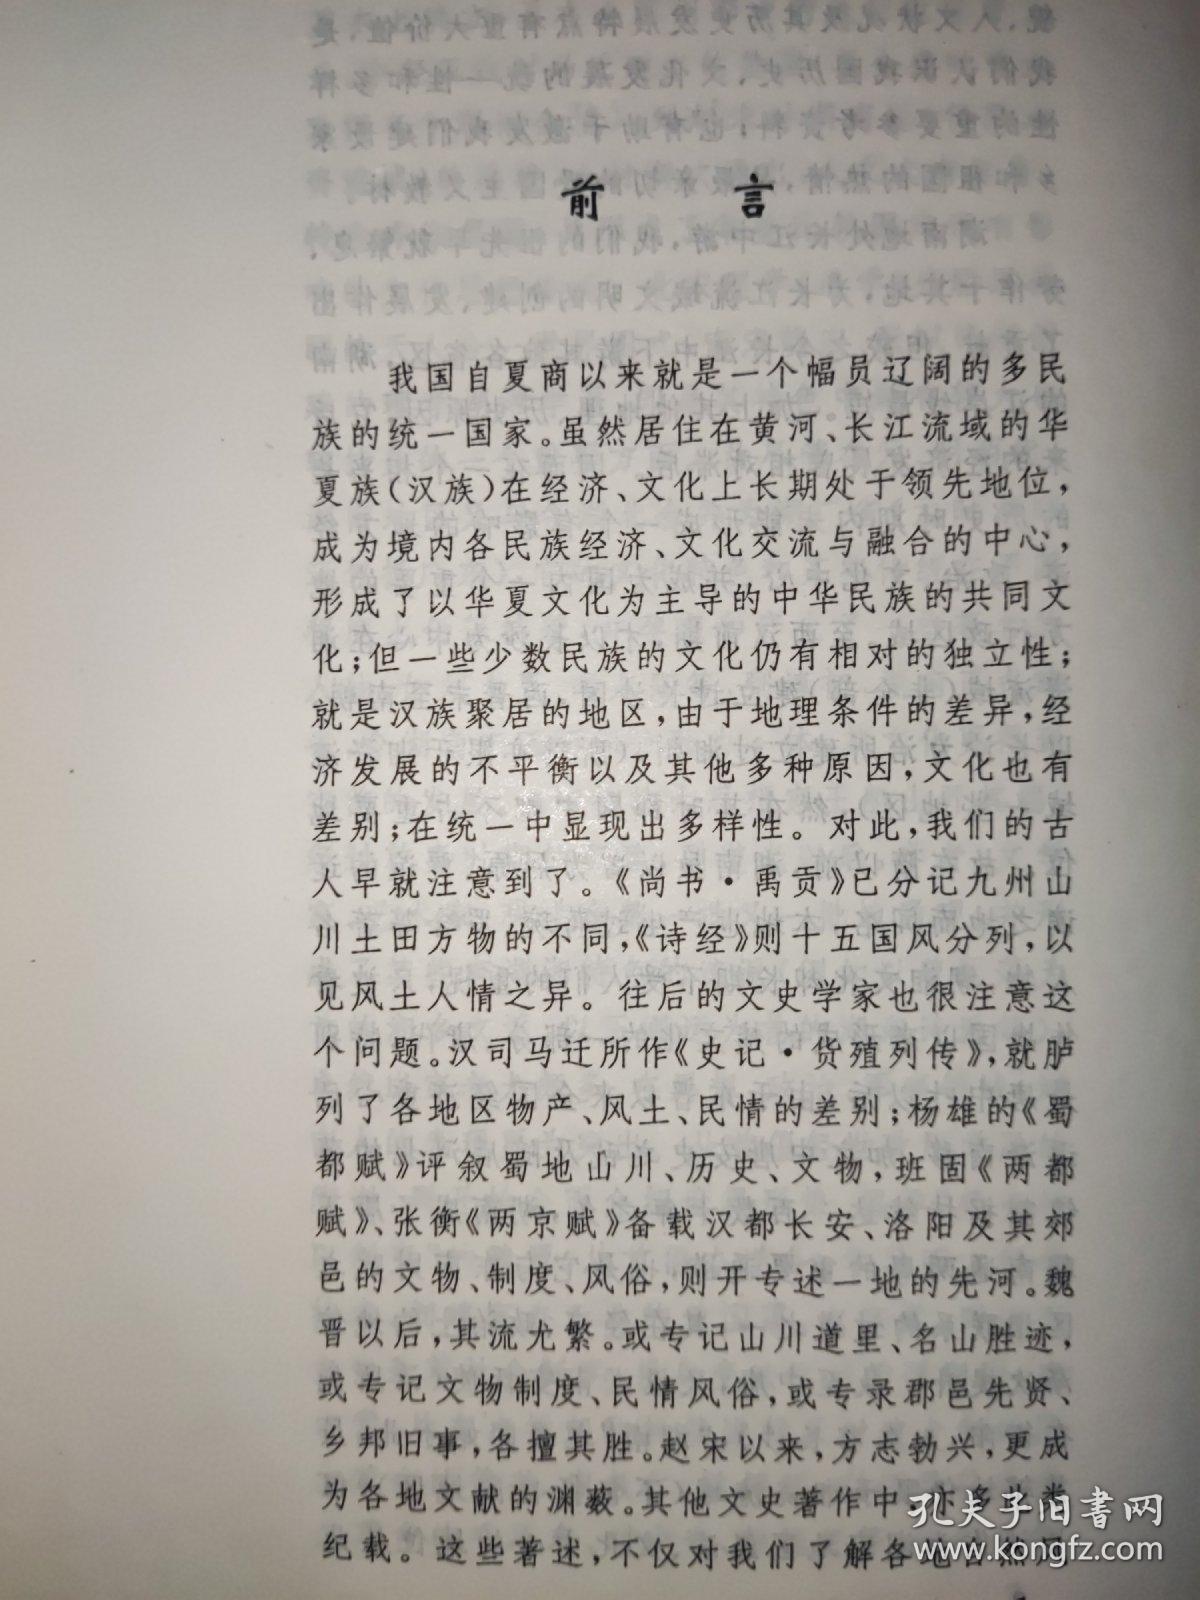 前言
我国自夏商以来就是一个幅员辽阔的多民
族的统一国家。虽然居住在黄河、长江流域的华
夏族(汉族)在经济、文化上长期处于领先地位，
成为境内各民族经济、文化交流与融合的中心，
形成了以华夏文化为主导的中华民族的共同文
化；但一些少数民族的文化仍有相对的独立性；
就是汉族聚居的地区，由于地理条件的差异，经
济发展的不平衡以及其他多种原因，文化也有
差别；在统一中显现出多样性。对此，我们的古
人早就注意到了。《尚书·禹贡》已分记九州山
川土田方物的不同，《诗经》则十五国风分列，以
见风土人情之异。往后的文史学家也很注意这
个问题。汉司马迁所作《史记·货殖列传》，就胪
列了各地区物产、风土、民情的差别；杨雄的《蜀
都赋》评叙蜀地山川、历史、文物，班固《两都
赋》、张衡《两京赋》备载汉都长安、洛阳及其郊
邑的文物、制度、风俗，则开专述一地的先河。魏
晋以后，其流尤繁。或专记山川道里、名山胜迹，
或专记文物制度、民情风俗，或专录郡邑先贤、
乡邦旧事，各擅其胜。赵宋以来，方志勃兴，更成
为各地文献的渊薮。其他文史著作中，亦多此类
纪载。这些著述，不仅对我们了解各地自然风
孔夫子旧书网
www.kongfz.com